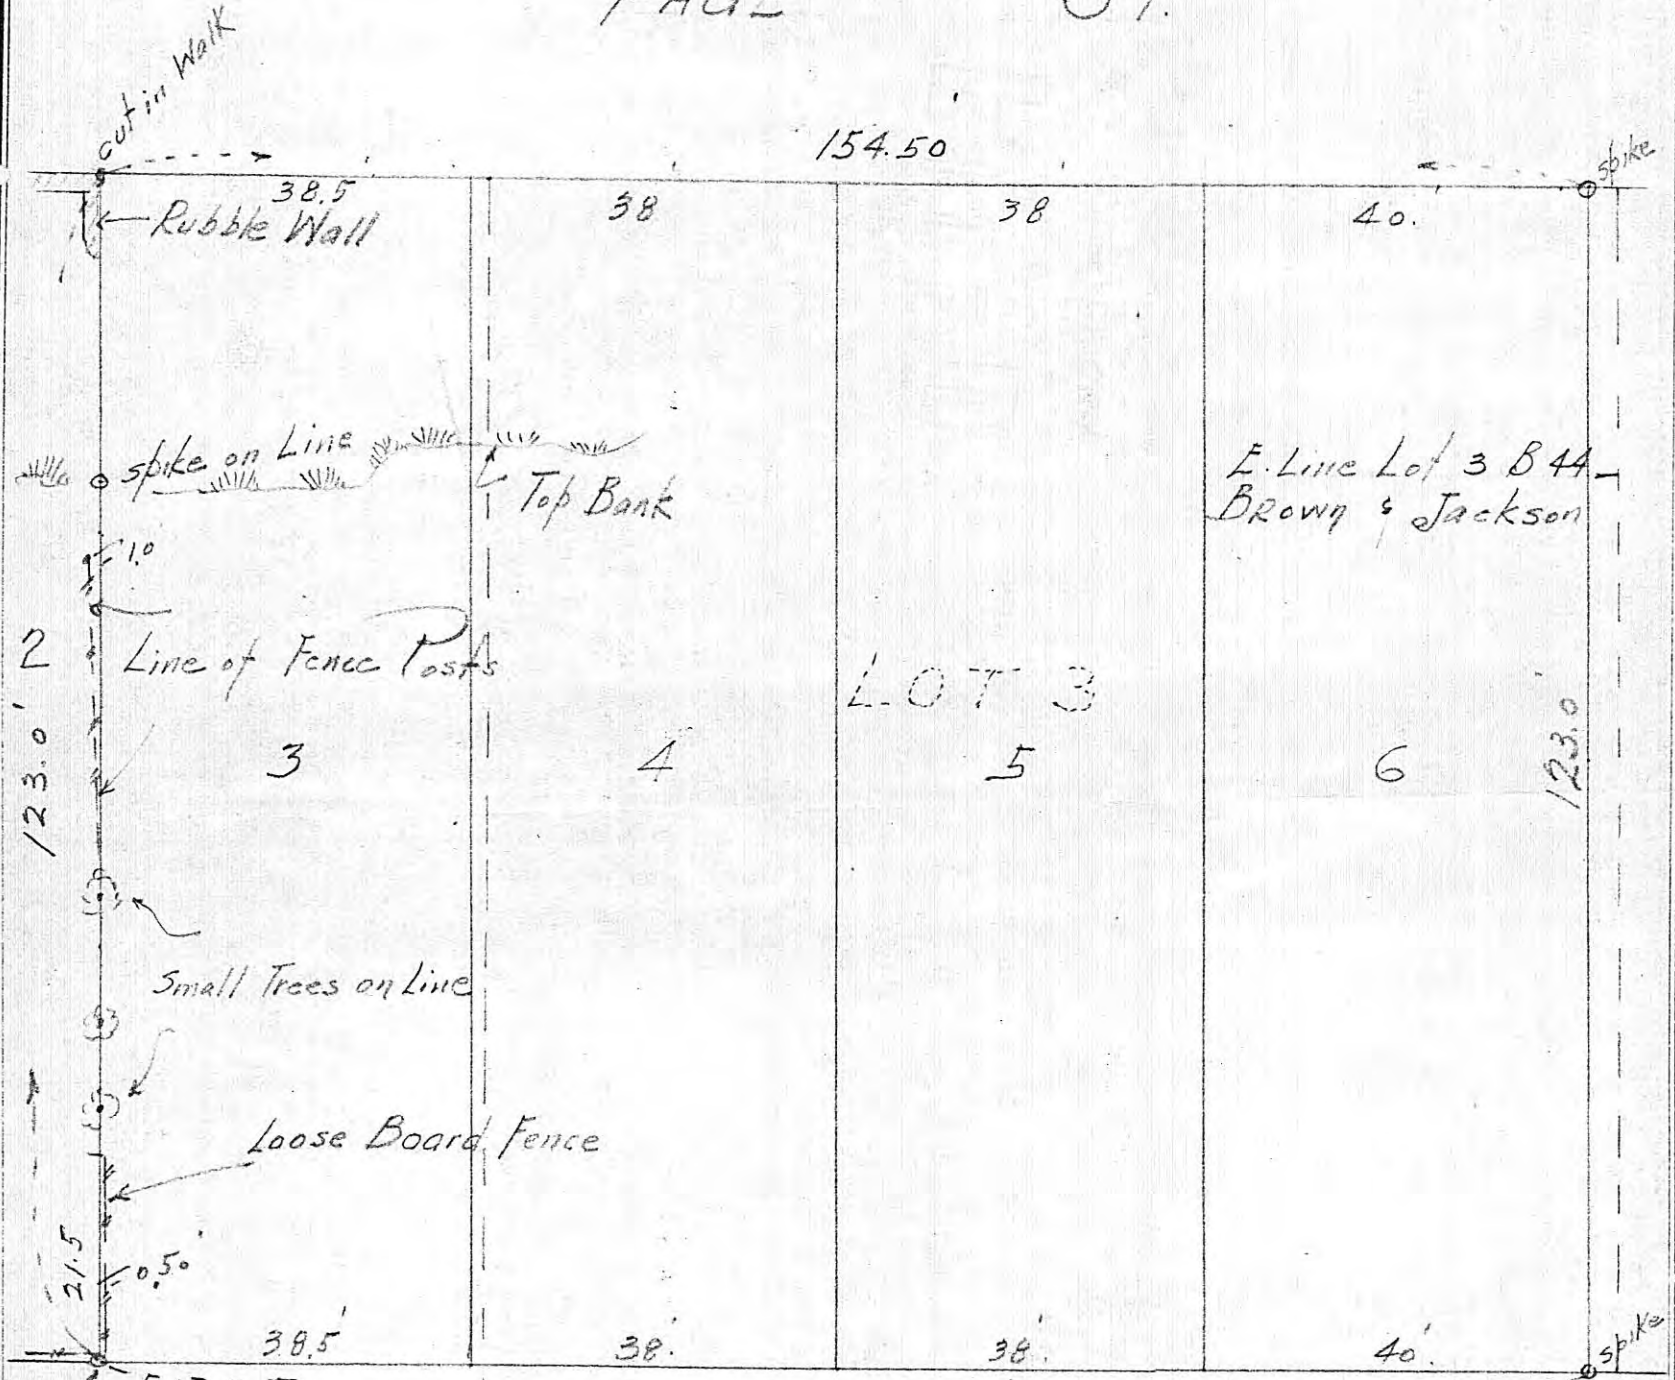 St.
cut in Walk
154.50'
spike
38.5'
38'
38'
40.'
Rubble Wall
spike on Line
Top Bank
E. Line Lot 3 B 44
Brown & Jackson
1.0
2
Line of Fence Posts
LOT 3
123.0'
3
4
5
6
123.0'
Small Trees on Line
Loose Board Fence
21.5
0.50'
38.5'
38.'
38.'
40.'
spike